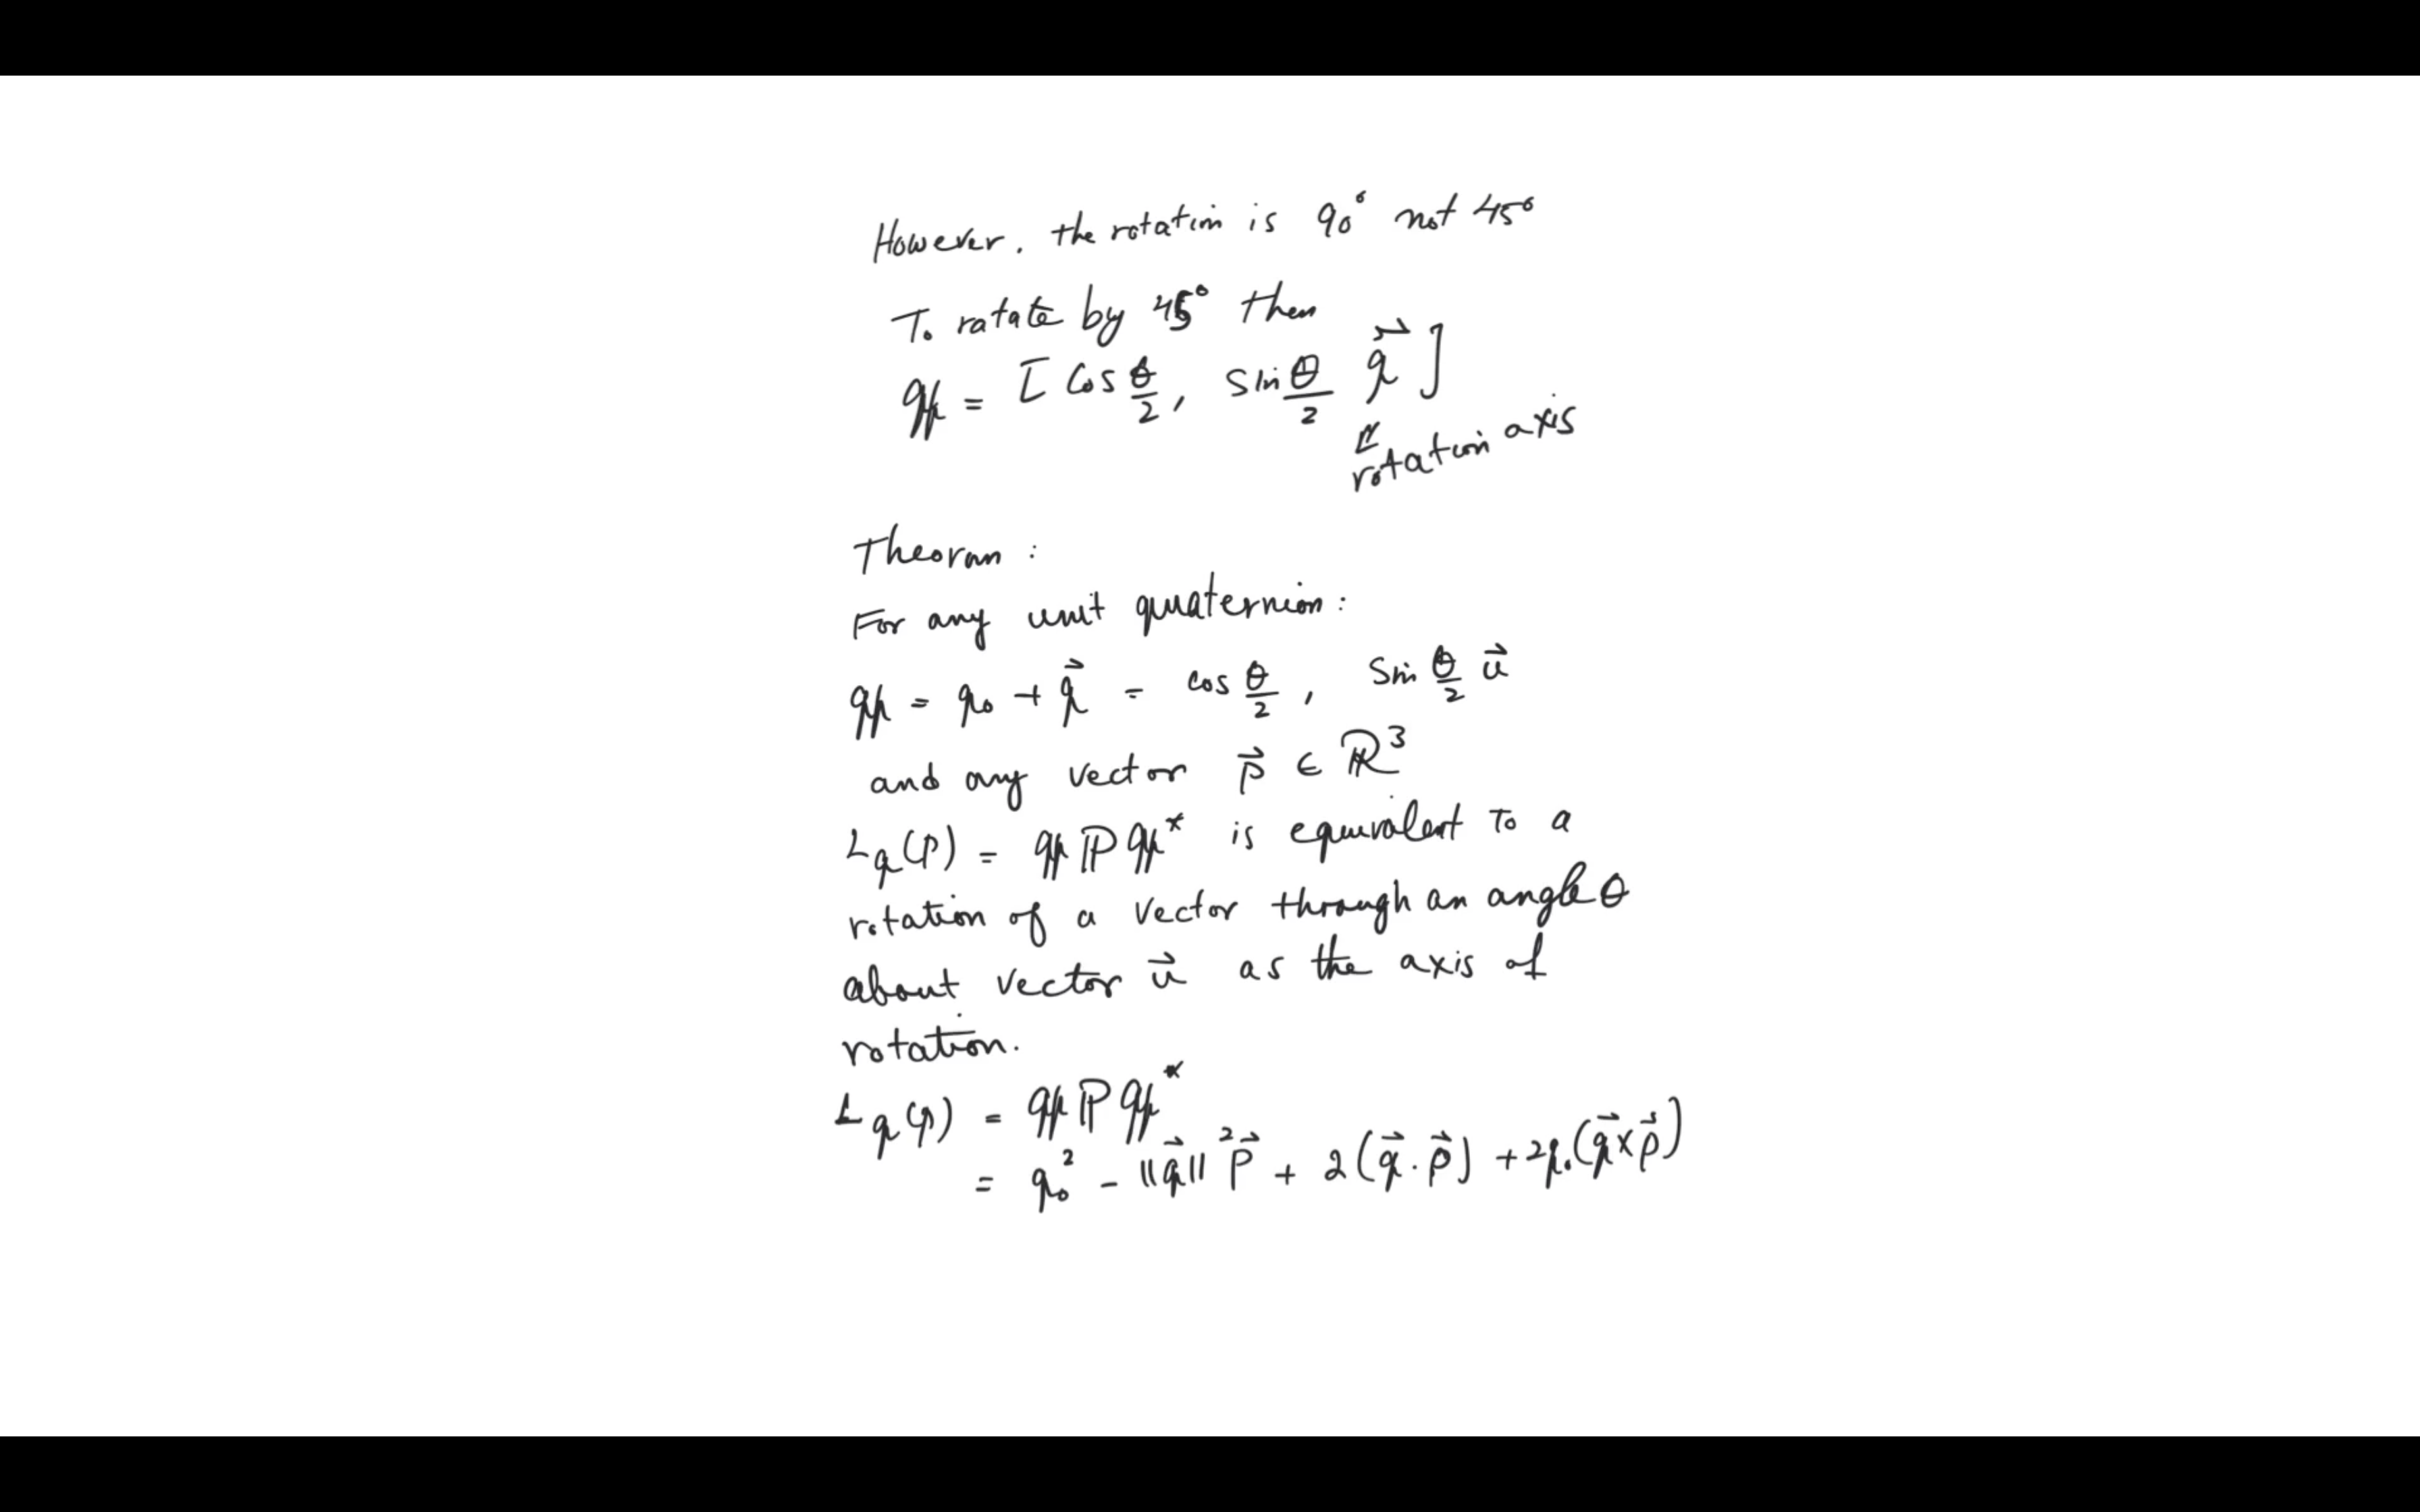 However. the rotation is 90° not 45°
To rotate by 45° then
q = [ Cos θ/2, Sin θ/2 q⃗ ]
rotation axis
Theoram :
For any unit quaternion :
q = q₀ + q⃗ = cos θ/2 , Sin θ/2 u⃗
and any vector p⃗ ∈ ℝ³
L_q(p) = q ℙ q* is equivalent to a
rotation of a vector through an angle θ
about vector u⃗ as the axis of
rotation.
L_q(p) = q ℙ q*
= q₀² - ||q⃗||² p⃗ + 2(q⃗ . p⃗) + 2q₀(q⃗ x p⃗)